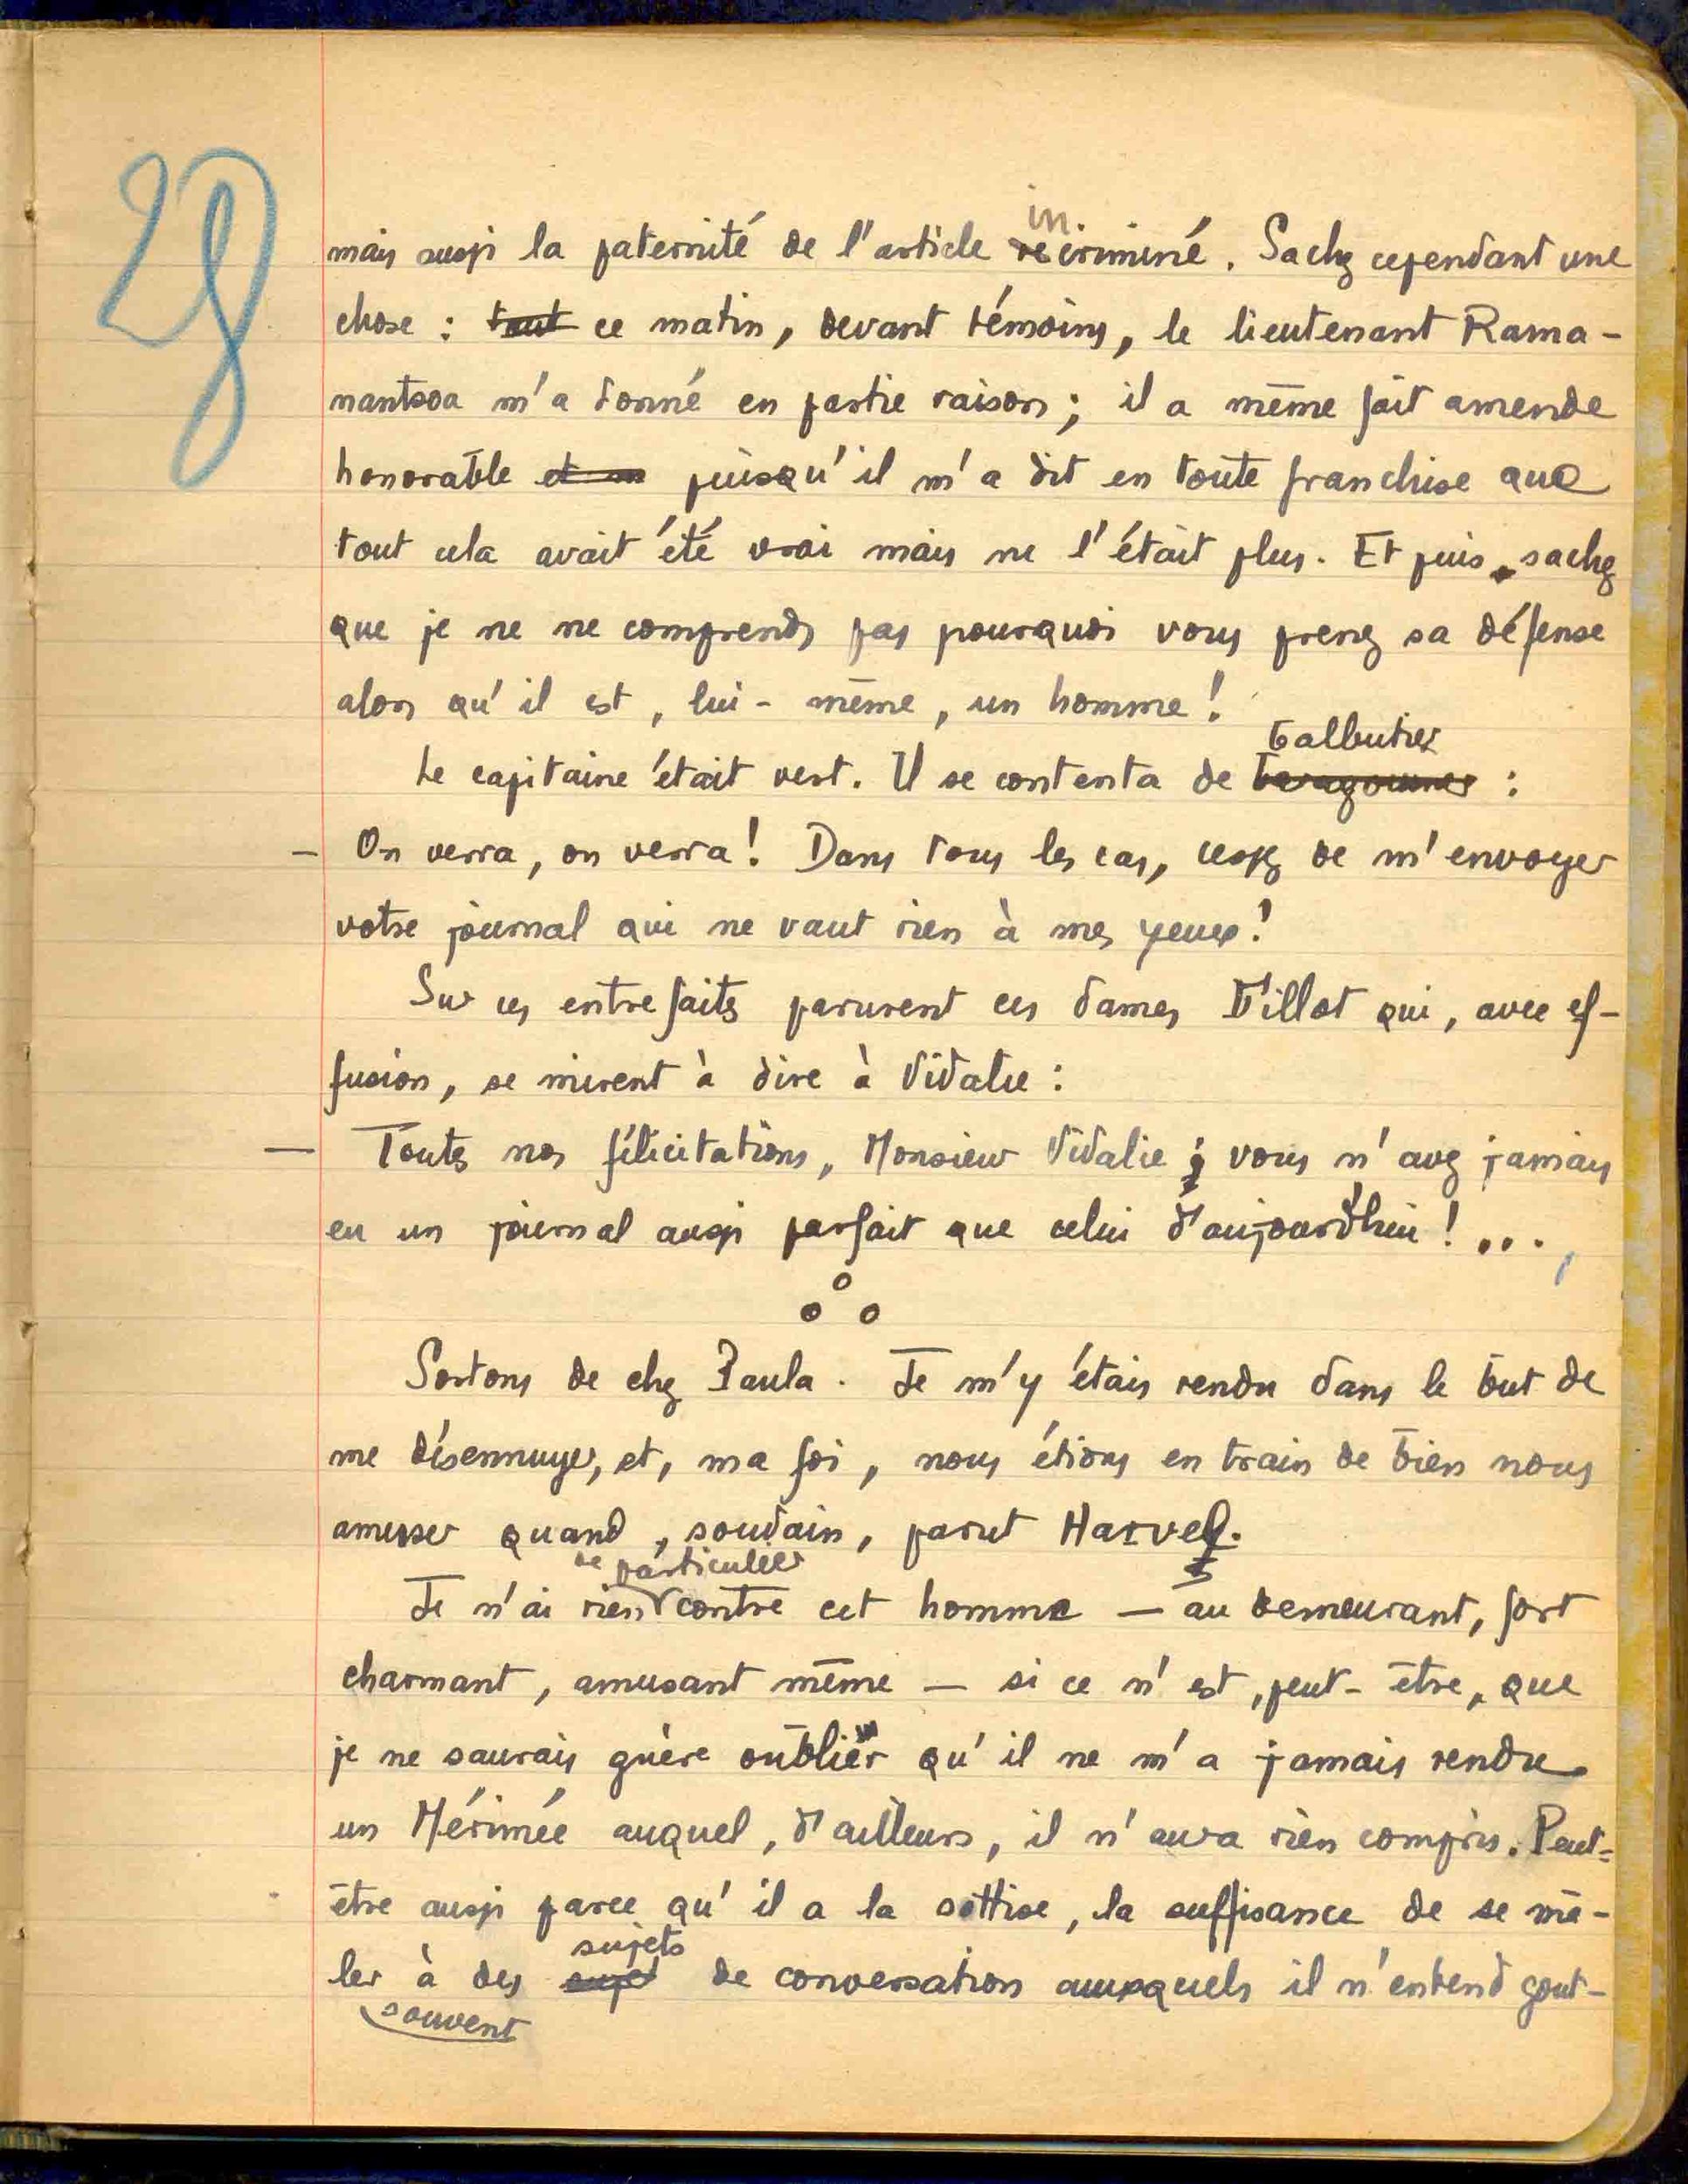 28
in
mais aussi la paternité de l'article recriminé. Sachez cependant une
chose : tout ce matin, devant témoins, le lieutenant Rama-
nantsoa m'a donné en partie raison ; il a même fait amende
honorable et puisqu'il m'a dit en toute franchise que
tout cela avait été vrai mais ne l'était plus. Et puis, sachez
que je ne ne comprends pas pourquoi vous prenez sa défense
alors qu'il est, lui-même, un homme !
balbutier
Le capitaine était vert. Il se contenta de baragouiner :
— On verra, on verra ! Dans tous les cas, cessez de m'envoyer
votre journal qui ne vaut rien à mes yeux !
Sur ces entrefaites parurent ces dames Villot qui, avec ef-
fusion, se mirent à dire à Vidalie :
— Toutes nos félicitations, Monsieur Vidalie ; vous n'avez jamais
eu un journal aussi parfait que celui d'aujourd'hui ! ...
Sortons de chez Paula. Je m'y étais rendu dans le but de
me désennuyer, et, ma foi, nous étions en train de bien nous
amuser quand, soudain, parut Harvel.
de particulier
Je n'ai rien contre cet homme — au demeurant, fort
charmant, amusant même — si ce n'est, peut-être, que
je ne saurais guère oublier qu'il ne m'a jamais rendu
un Mérimée auquel, d'ailleurs, il n'aura rien compris. Peut=
être aussi parce qu'il a la sottise, la suffisance de se mê-
sujets
ler à des sujet de conversation auxquels il n'entend gout-
souvent